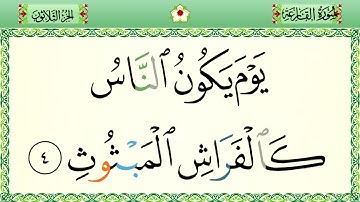 سورة القارعة الجزء الثلاثون
يَوْمَ يَكُونُ ٱلنَّاسُ
كَٱلْفَرَاشِ ٱلْمَبْثُوثِ ٤